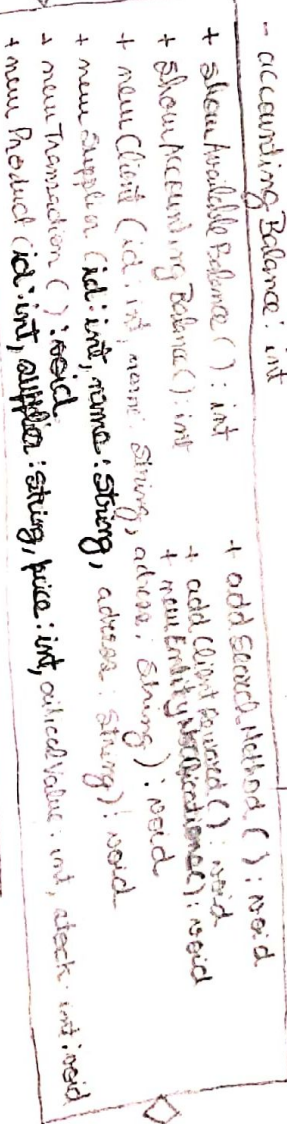 - accountingBalance : int
+ showAvailableBalance ( ) : int
+ showAccountingBalance ( ) : int
+ newClient ( id : int, name : String, adress : String ) : void
+ newSupplier ( id : int, name : String, adress : String ) : void
+ newTransaction ( ) : void
+ newProduct ( id : int, supplier : String, price : int, criticalValue : int, stock : int : void
+ addSearchMethod ( ) : void
+ addClientReward ( ) : void
+ newEntityNotifications ( ) : void